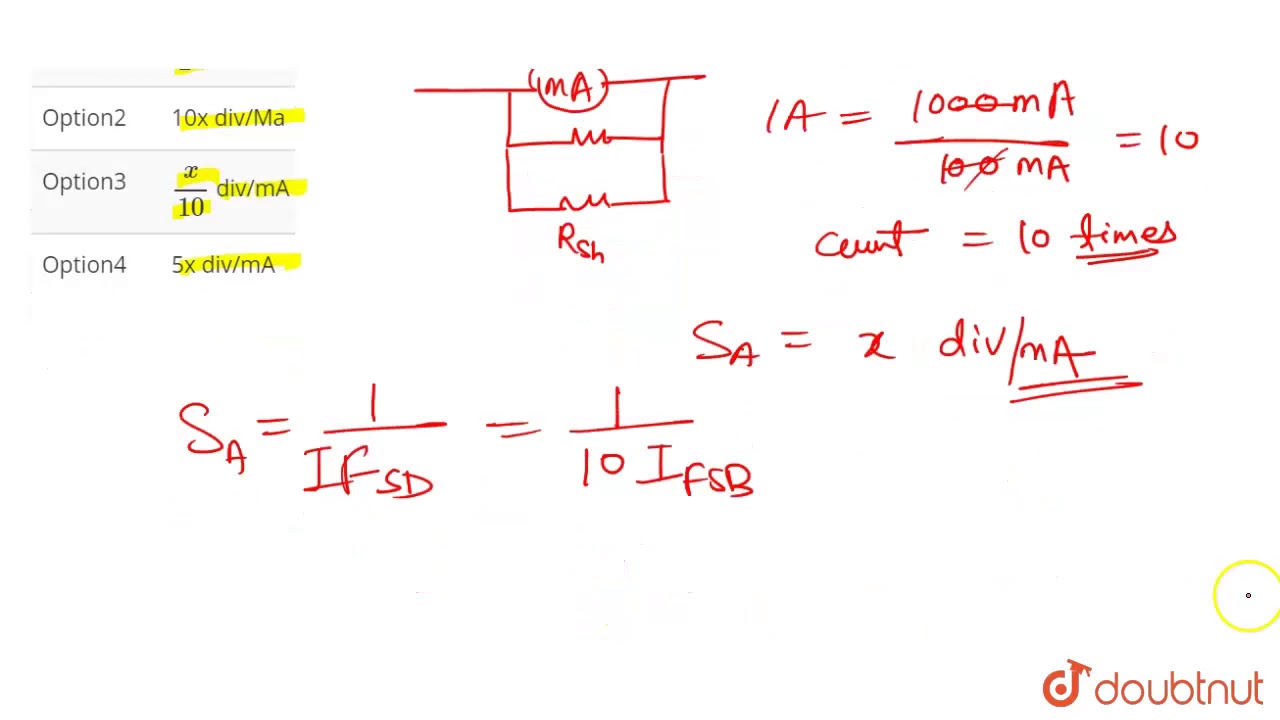 Option2 10x div/Ma
Option3 x/10 div/mA
Option4 5x div/mA
mA
Rsh
1A = 1000 mA / 100 mA = 10
count = 10 times
SA = x div/mA
SA = 1 / IFSD = 1 / 10 IFSB
doubtnut